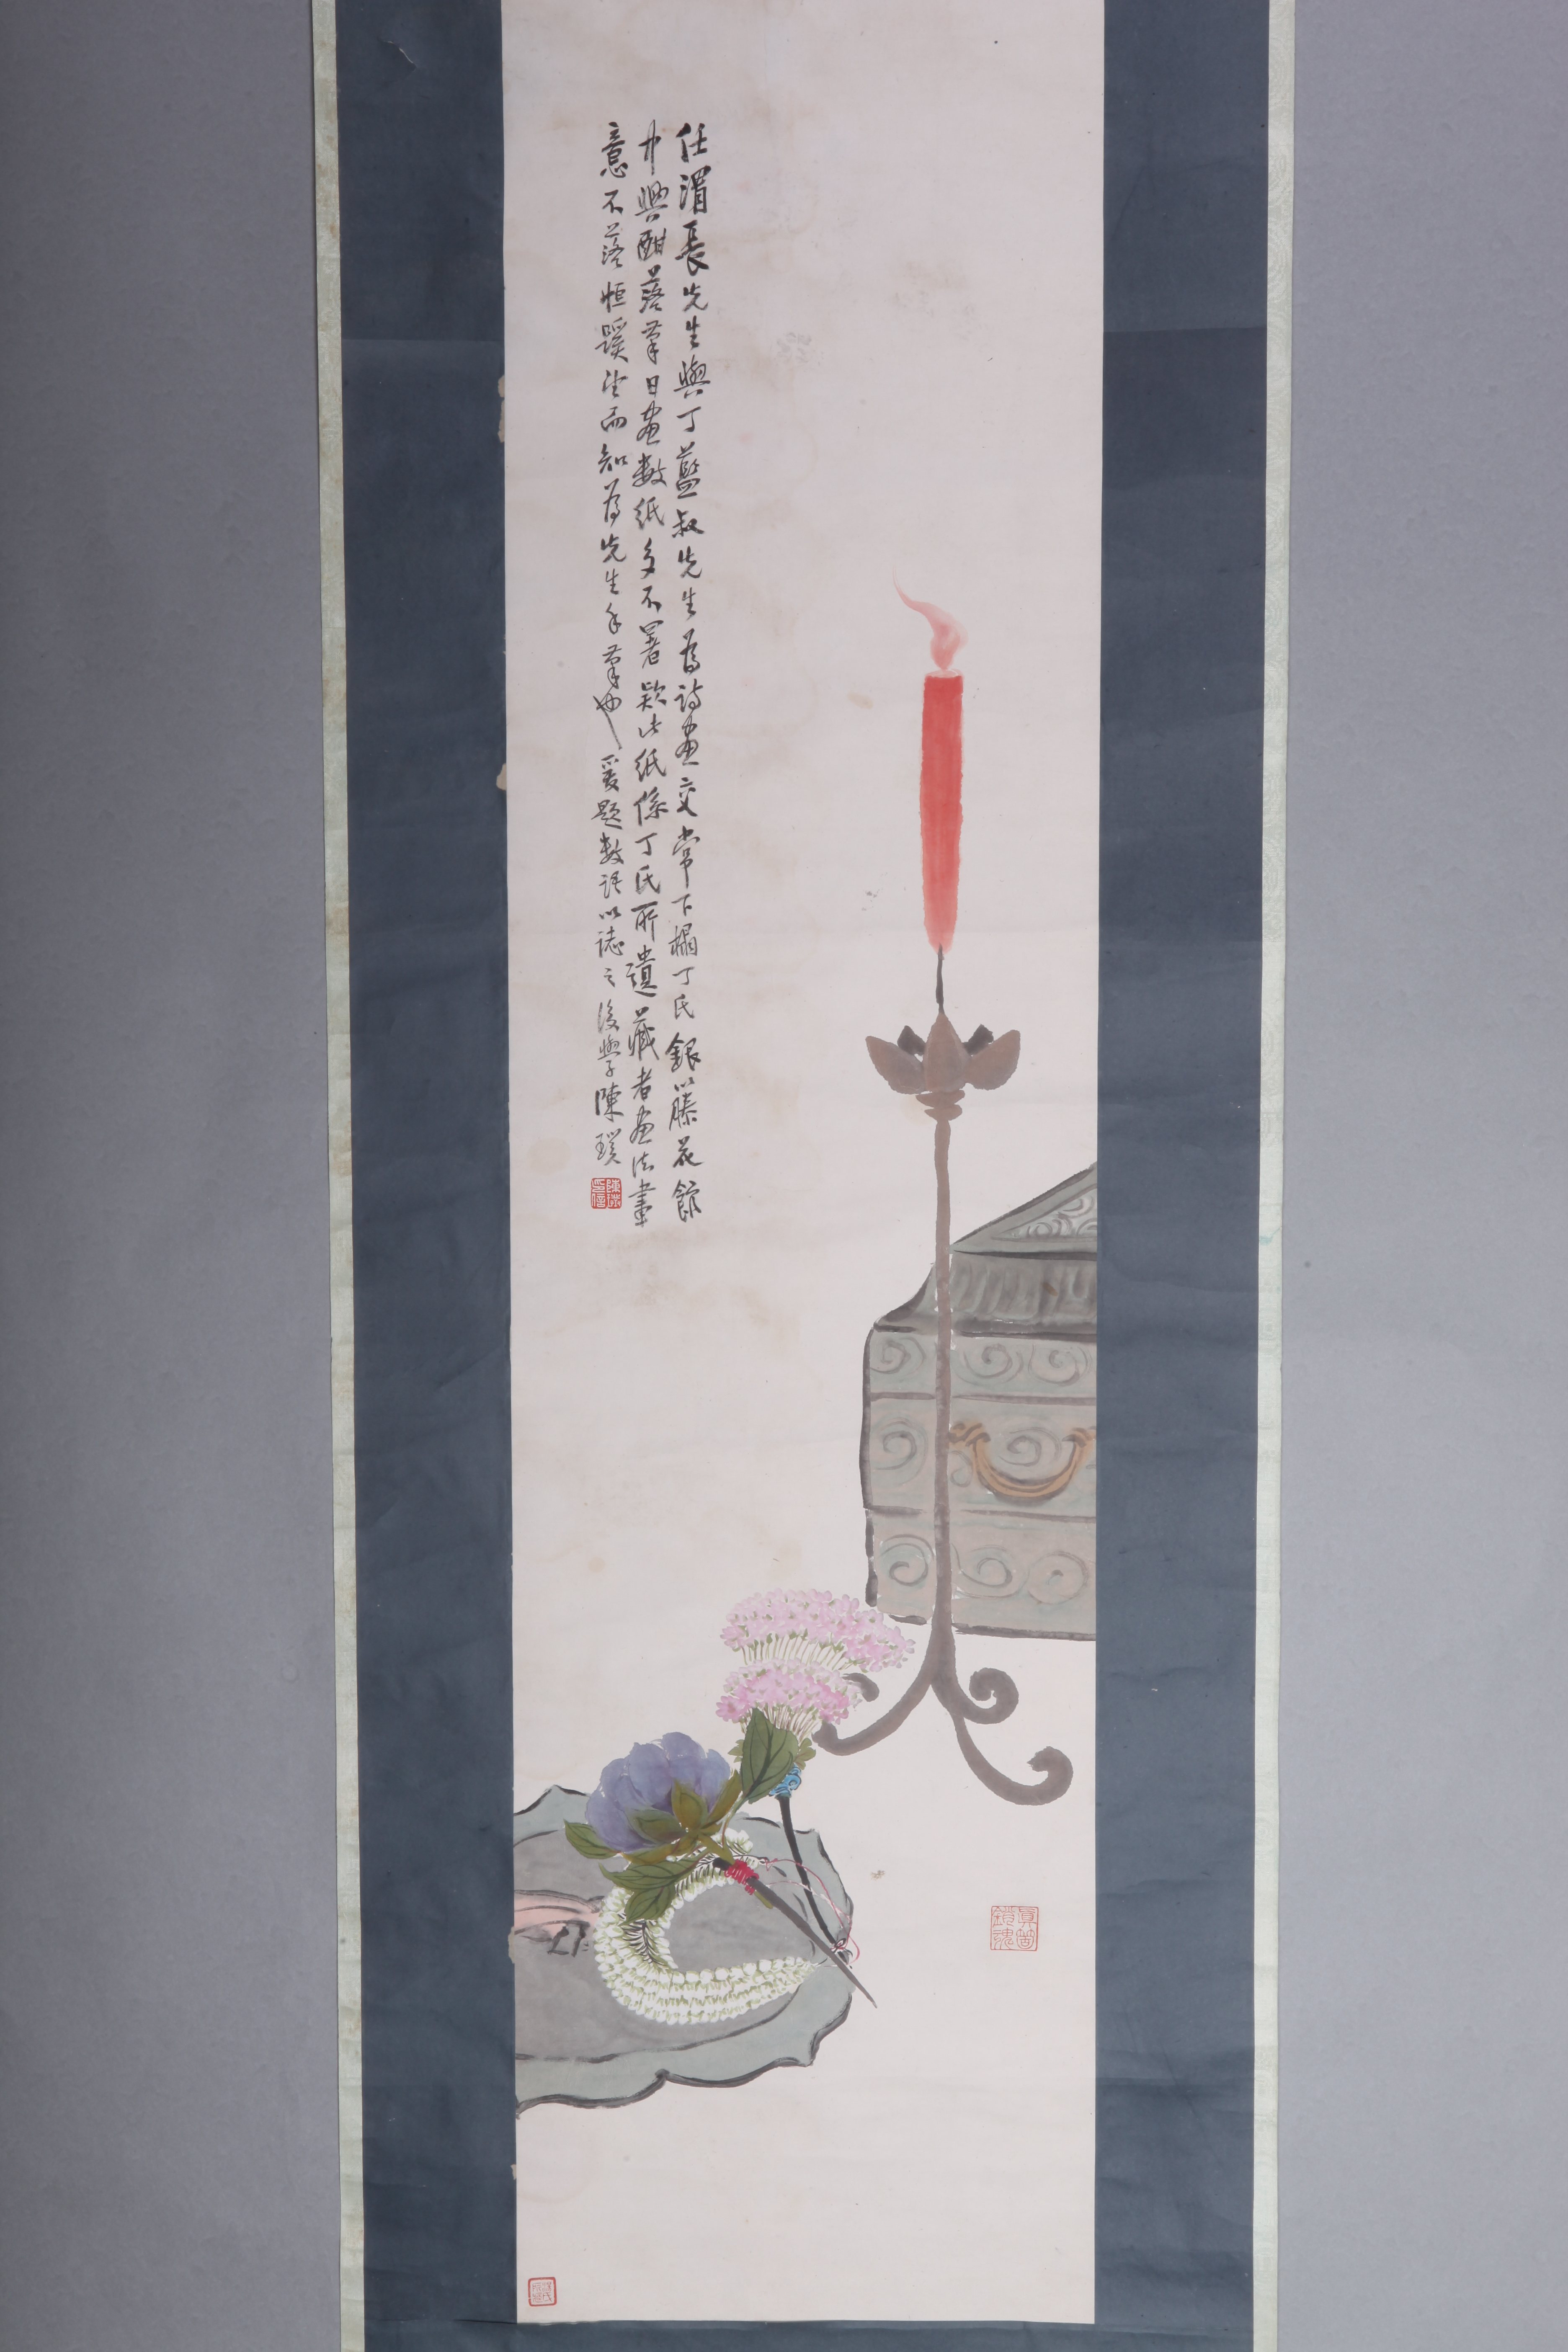 任渭長先生與丁藍叔先生為詩畫交常下榻丁氏銀籐花館
中興酣落筆日畫數紙多不署款此紙係丁氏所遺藏者畫法筆
意不落恒蹊望而知為先生手筆也爰題數語以誌之後學陳璞